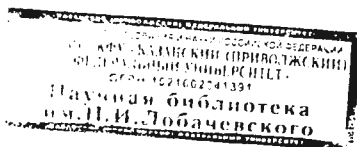 РОССИЙСКОЙ ФЕДЕРАЦИИ
КАЗАНСКИЙ (ПРИВОЛЖСКИЙ)
ФЕДЕРАЛЬНЫЙ УНИВЕРСИТЕТ
ОГРН 1021602841391
Научная библиотека
им.Н.И.Лобачевского